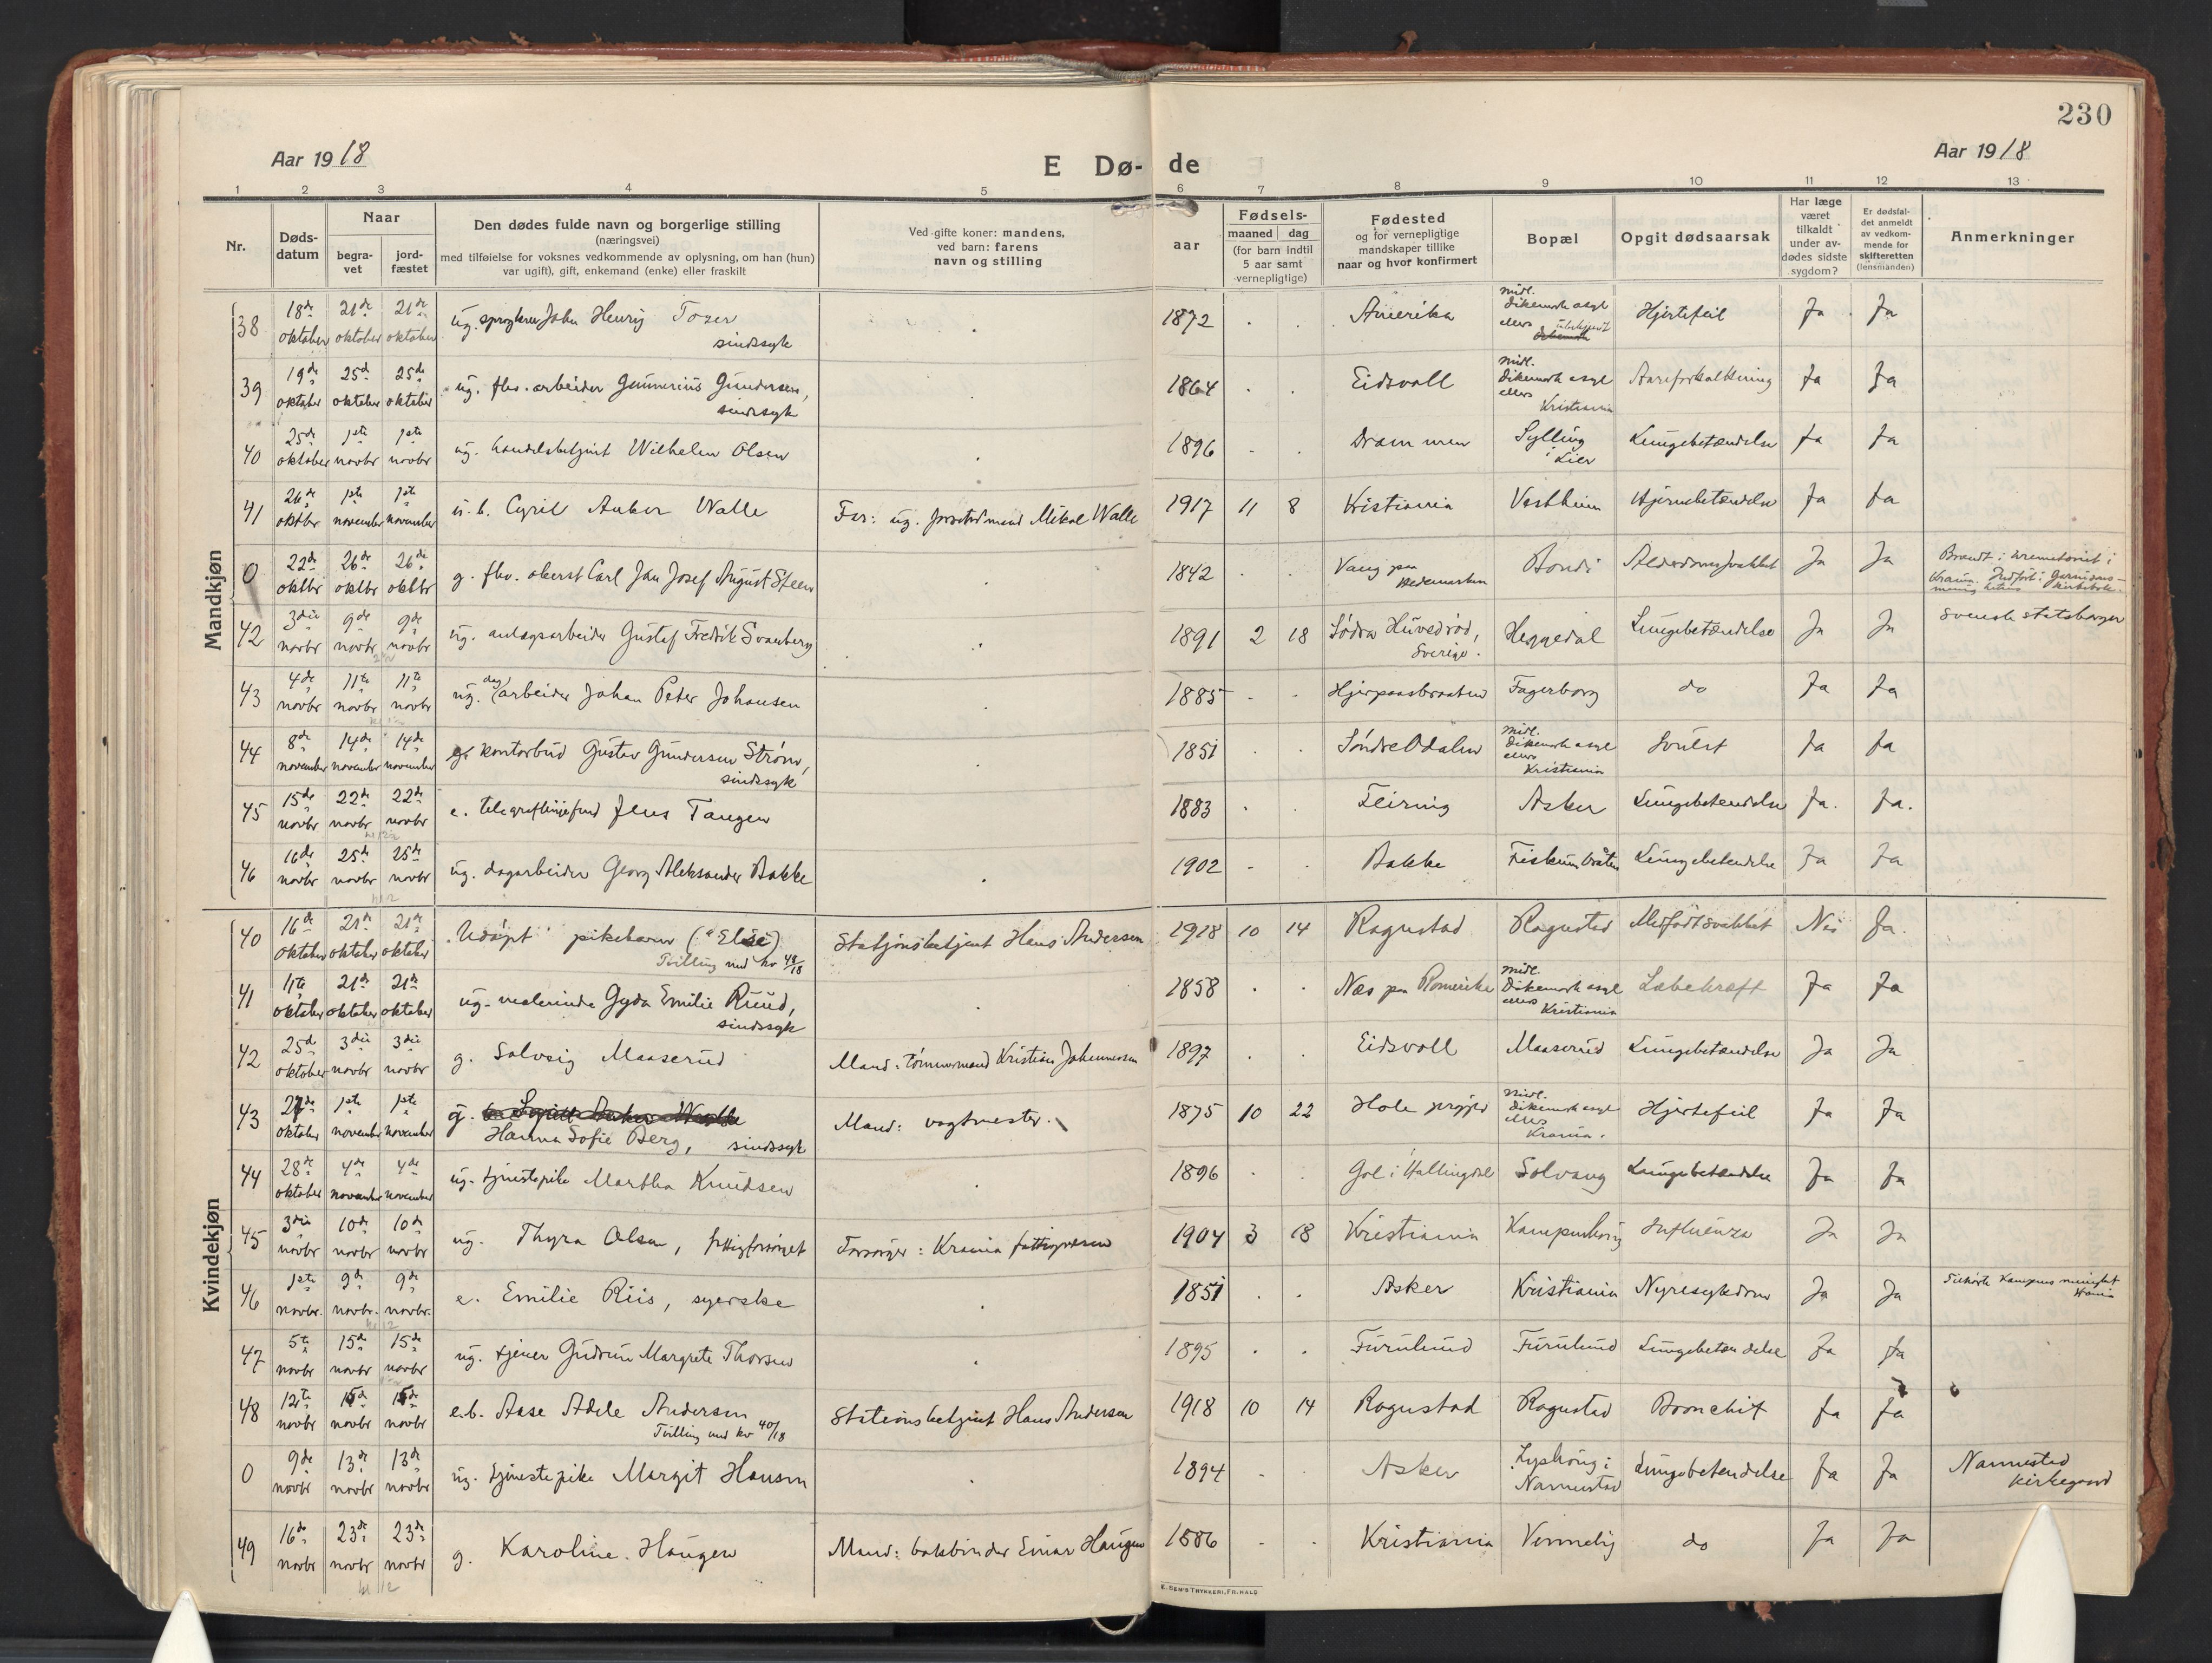 230
Aar 1918
E Dø-
de
Aar 1918
1 2 3 4 5 6 7 8 9 10 11 12 13
Nr.
Døds-
datum
Naar
begra-
vet
jord-
fæstet
Den dødes fulde navn og borgerlige stilling
(næringsvei)
med tilføielse for voksnes vedkommende av oplysning, om han (hun)
var ugift), gift, enkemand (enke) eller fraskilt
Ved gifte koner: mandens,
ved barn: farens
navn og stilling
aar
Fødsels-
maaned dag
(for barn indtil
5 aar samt
vernepligtige)
Fødested
og for vernepligtige
mandskaper tillike
naar og hvor konfirmert
Bopæl
Opgit dødsaarsak
Har læge
været
tilkaldt
under av-
dødes sidste
sygdom?
Er dødsfal-
det anmeldt
av vedkom-
mende for
skifteretten
(lensmanden)
Anmerkninger
Mandkjøn
38 18de oktober 21de oktober 21de oktober ug. John Henry Tozer sindssyk 1872 Amerika midl. Dikemark asyl ellers ubekjendt Hjertefeil Ja Ja
39 19de oktober 25de oktober 25de oktober ug. fhv. arbeider Gunnerius Gundersen, sindssyk 1864 Eidsvoll midl. Dikemark asyl ellers Kristiania Aareforkalkning Ja Ja
40 25de oktober 1ste novbr 1ste novbr ug. handelsbetjent Wilhelm Olsen 1896 Drammen Sylling i Lier Lungebetændelse Ja Ja
41 26de oktbr 1ste november 1ste november u.b. Cyril Anker Walle Far: ug. Mikal Walle 1917 11 8 Kristiania Vestheim Hjernebetændelse Ja Ja
0 22de oktbr 26de oktbr 26de oktbr g. fhv. oberst Carl Jan Josef August Steen 1842 Vang paa Hedemarken Bondi Alderdomssvakhet Ja Ja Brændt i krematoriet i Krania. Indført i Garnisons-menighetens kirkebok
42 3die novbr 9de novbr 9de novbr ug. anlagsarbeider Gustaf Fredrik Svanberg 1891 2 18 Södra Huvedröd, Sverige. Heggedal Lungebetændelse Ja Ja svensk statsborger
43 4de novbr 11te novbr 11te novbr ug. dag arbeider Johan Peter Johansen 1885 Hjerpaasbraaten Fagerborg do Ja Ja
44 8de november 14de november 14de november g. kontorbud Gustav Gundersen Strøm, sindssyk 1851 Søndre Odalen midl. Dikemark asyl ellers Kristiania Svulst Ja Ja
45 15de novbr 22de novbr 22de novbr e. Jens Tangen 1883 Feiring Asker Lungebetændelse Ja. Ja.
46 16de novbr 25de novbr 25de novbr ug. dagarbeider Georg Aleksander Bakke 1902 Bakke Fiskumbråten Lungebetændelse Ja Ja
Kvindekjøn
40 16de oktober 21de oktober 21de oktober "Udøpt" pikebarn ("Else) Tvilling med kv 48/18 Stationsbetjent Hans Andersen 1918 10 14 Rogustad Rogustad Medfødt svakhet Nei Ja.
41 11te oktober 21de oktober 21de oktober ug. Gyda Emilie Ruud, sindssyk 1858 Næs paa Romerike midl. Dikemark asyl ellers Kristiania Labekraft Ja Ja
42 25de oktober 3die novbr 3die novbr g. Solveig Maaserud Mand: tømmermand Kristian Johannessen 1897 Eidsvoll Maaserud Lungebetændelse Ja Ja
43 27de oktober 1ste november 1ste november g. Hanna Sofie Berg, sindssyk Mand: vogtmester. 1875 10 22 Hole prgjld midl. Dikemark asyl ellers Krania. Hjertefeil Ja Ja
44 28de oktober 4de november 4de november ug. tjenestepike Martha Knudsen 1896 Gol i Hallingdal Solvang Lungebetændelse Ja Ja
45 3die novbr 10de novbr 10de novbr ug. Thyra Olsen, fattigforsørget Forsørger: Krania fattigvæsen 1904 3 18 Kristiania Kampenborg Influenza Ja Ja
46 1ste novbr. 9de novbr. 9de novbr. e. Emilie Riis, syerske 1851 Asker Kristiania Nyresykdom Ja Ja Tilhørte Kampens menighet Krania
47 5te novbr 15de novbr 15de novbr ug. tjener Gudrun Margrete Thorsen 1895 Furulund Furulund Lungebetændelse Ja Ja
48 12te novbr 15de novbr 15de novbr e.b. Aase Adele Andersen Tvilling med kv 40/18 Stationsbetjent Hans Andersen 1918 10 14 Rogustad Rogustad Bronchit Ja Ja
0 9de novbr 13de novbr 13de novbr ug. tjenestepike Margit Hansen 1894 Asker Lyshaug i Nannestad Lungebetændelse Ja Ja Nannestad kirkegaard
49 16de novbr 23de novbr 23de novbr g. Karoline Haugen Mand: bokbinder Einar Haugen 1886 Kristiania Vennelig do Ja Ja
E. SEM'S TRYKKERI, FR.HALD